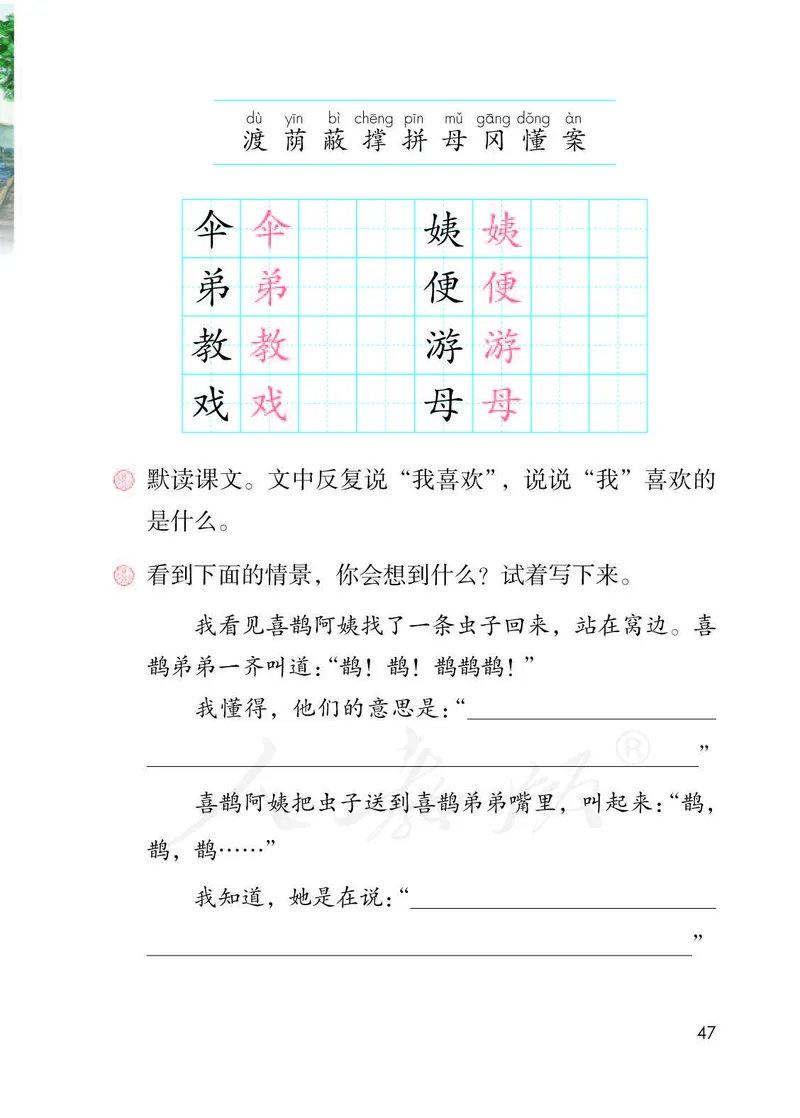 dù yīn bì chēng pīn mǔ gāng dǒng àn
渡 荫 蔽 撑 拼 母 冈 懂 案
伞 伞 姨 姨
弟 弟 便 便
教 教 游 游
戏 戏 母 母
默读课文。文中反复说“我喜欢”，说说“我”喜欢的
是什么。
看到下面的情景，你会想到什么？试着写下来。
我看见喜鹊阿姨找了一条虫子回来，站在窝边。喜
鹊弟弟一齐叫道：“鹊！鹊！鹊鹊鹊！”
我懂得，他们的意思是：“
”
喜鹊阿姨把虫子送到喜鹊弟弟嘴里，叫起来：“鹊，
鹊，鹊……”
我知道，她是在说：“
”
人教版®
47